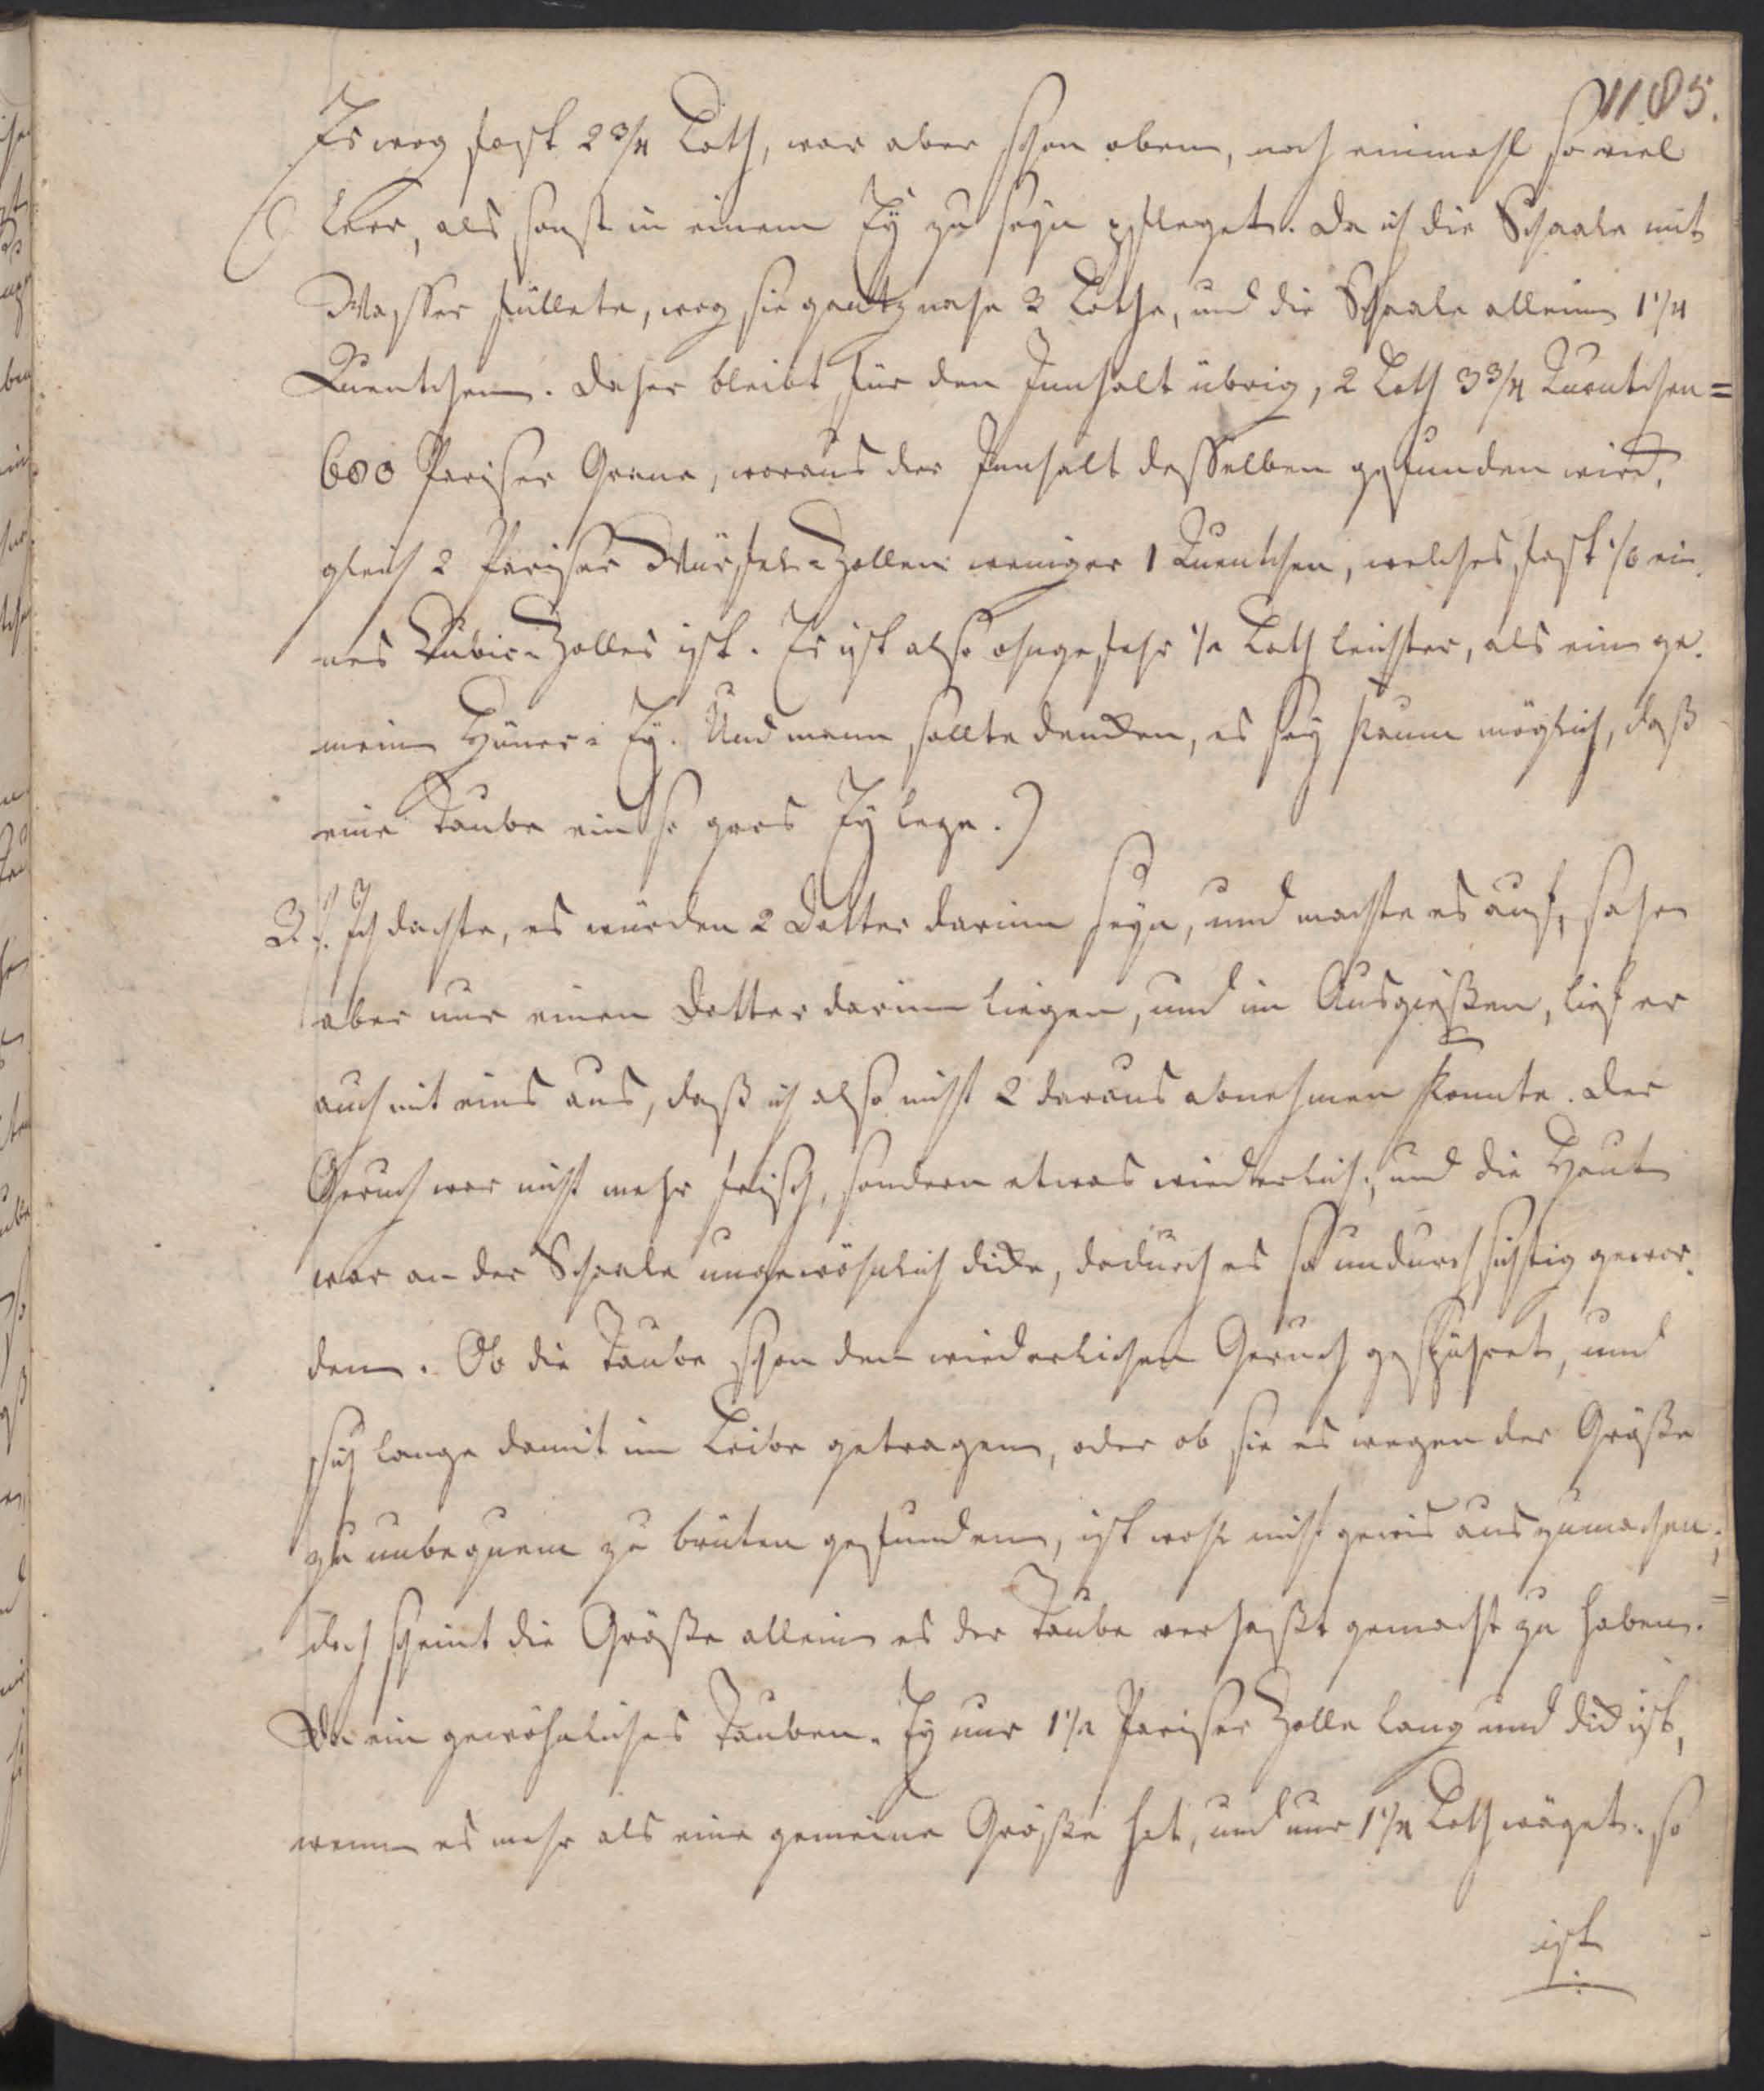 1185.
Es wog fast 2 3/4 Loth, war aber schon oben, noch einmahl so viel
leer, als sonst in einem Ey zu seyn pfleget. Da ich die Schaale mit
Wasser füllete, wog sie gantz nahe 3 Lothe, und die Schaale allein 1 1/4
Quentchen. Daher bleibt für den Innhalt übrig, 2 Loth 3 3/4 Quentchen =
680 Pariser Grane, woraus der Innhalt desselben gefunden wird,
gleich 2 Pariser Würfel-Zollen weniger 1 Quentchen, welches fast 1/6 ei-
nes Cubic-Zolles ist. Es ist also ohngefehr 1/2 Loth leichter, als ein ge-
mein Hüner-Ey. Und mann sollte dencken, es sey kaum möglich, daß
eine Taube ein so gros Ey lege.)
3.) Ich dachte, es würden 2 Dotter darinn seyn, und machte es auf, sahe
aber nur einen Dotter darinn liegen, und im Ausgießen, lief er
auch mit eins aus, daß ich also nicht 2 daraus abnehmen konnte. Der
Geruch war nicht mehr frisch, sondern etwas wiederlich, und die Haut
war an der Schaale ungewöhnlich dicke, dadurch es so undurchsichtig gewor-
den. Ob die Taube schon den wiederlichen Geruch gespühret, und
sich lange damit im Leibe getragen, oder ob sie es wegen der Größe
zu unbequem zu brüten gefunden, ist wohl nicht gewis auszumachen;
doch scheint die Größe allein es der Taube verhaßt gemacht zu haben.
Da ein gewöhnliches Tauben-Ey nur 1 1/2 Pariser Zolle lang und dick ist,
wenn es mehr als eine gemeine Größe hat, und nur 1 1/4 Loth wäget. so
ist